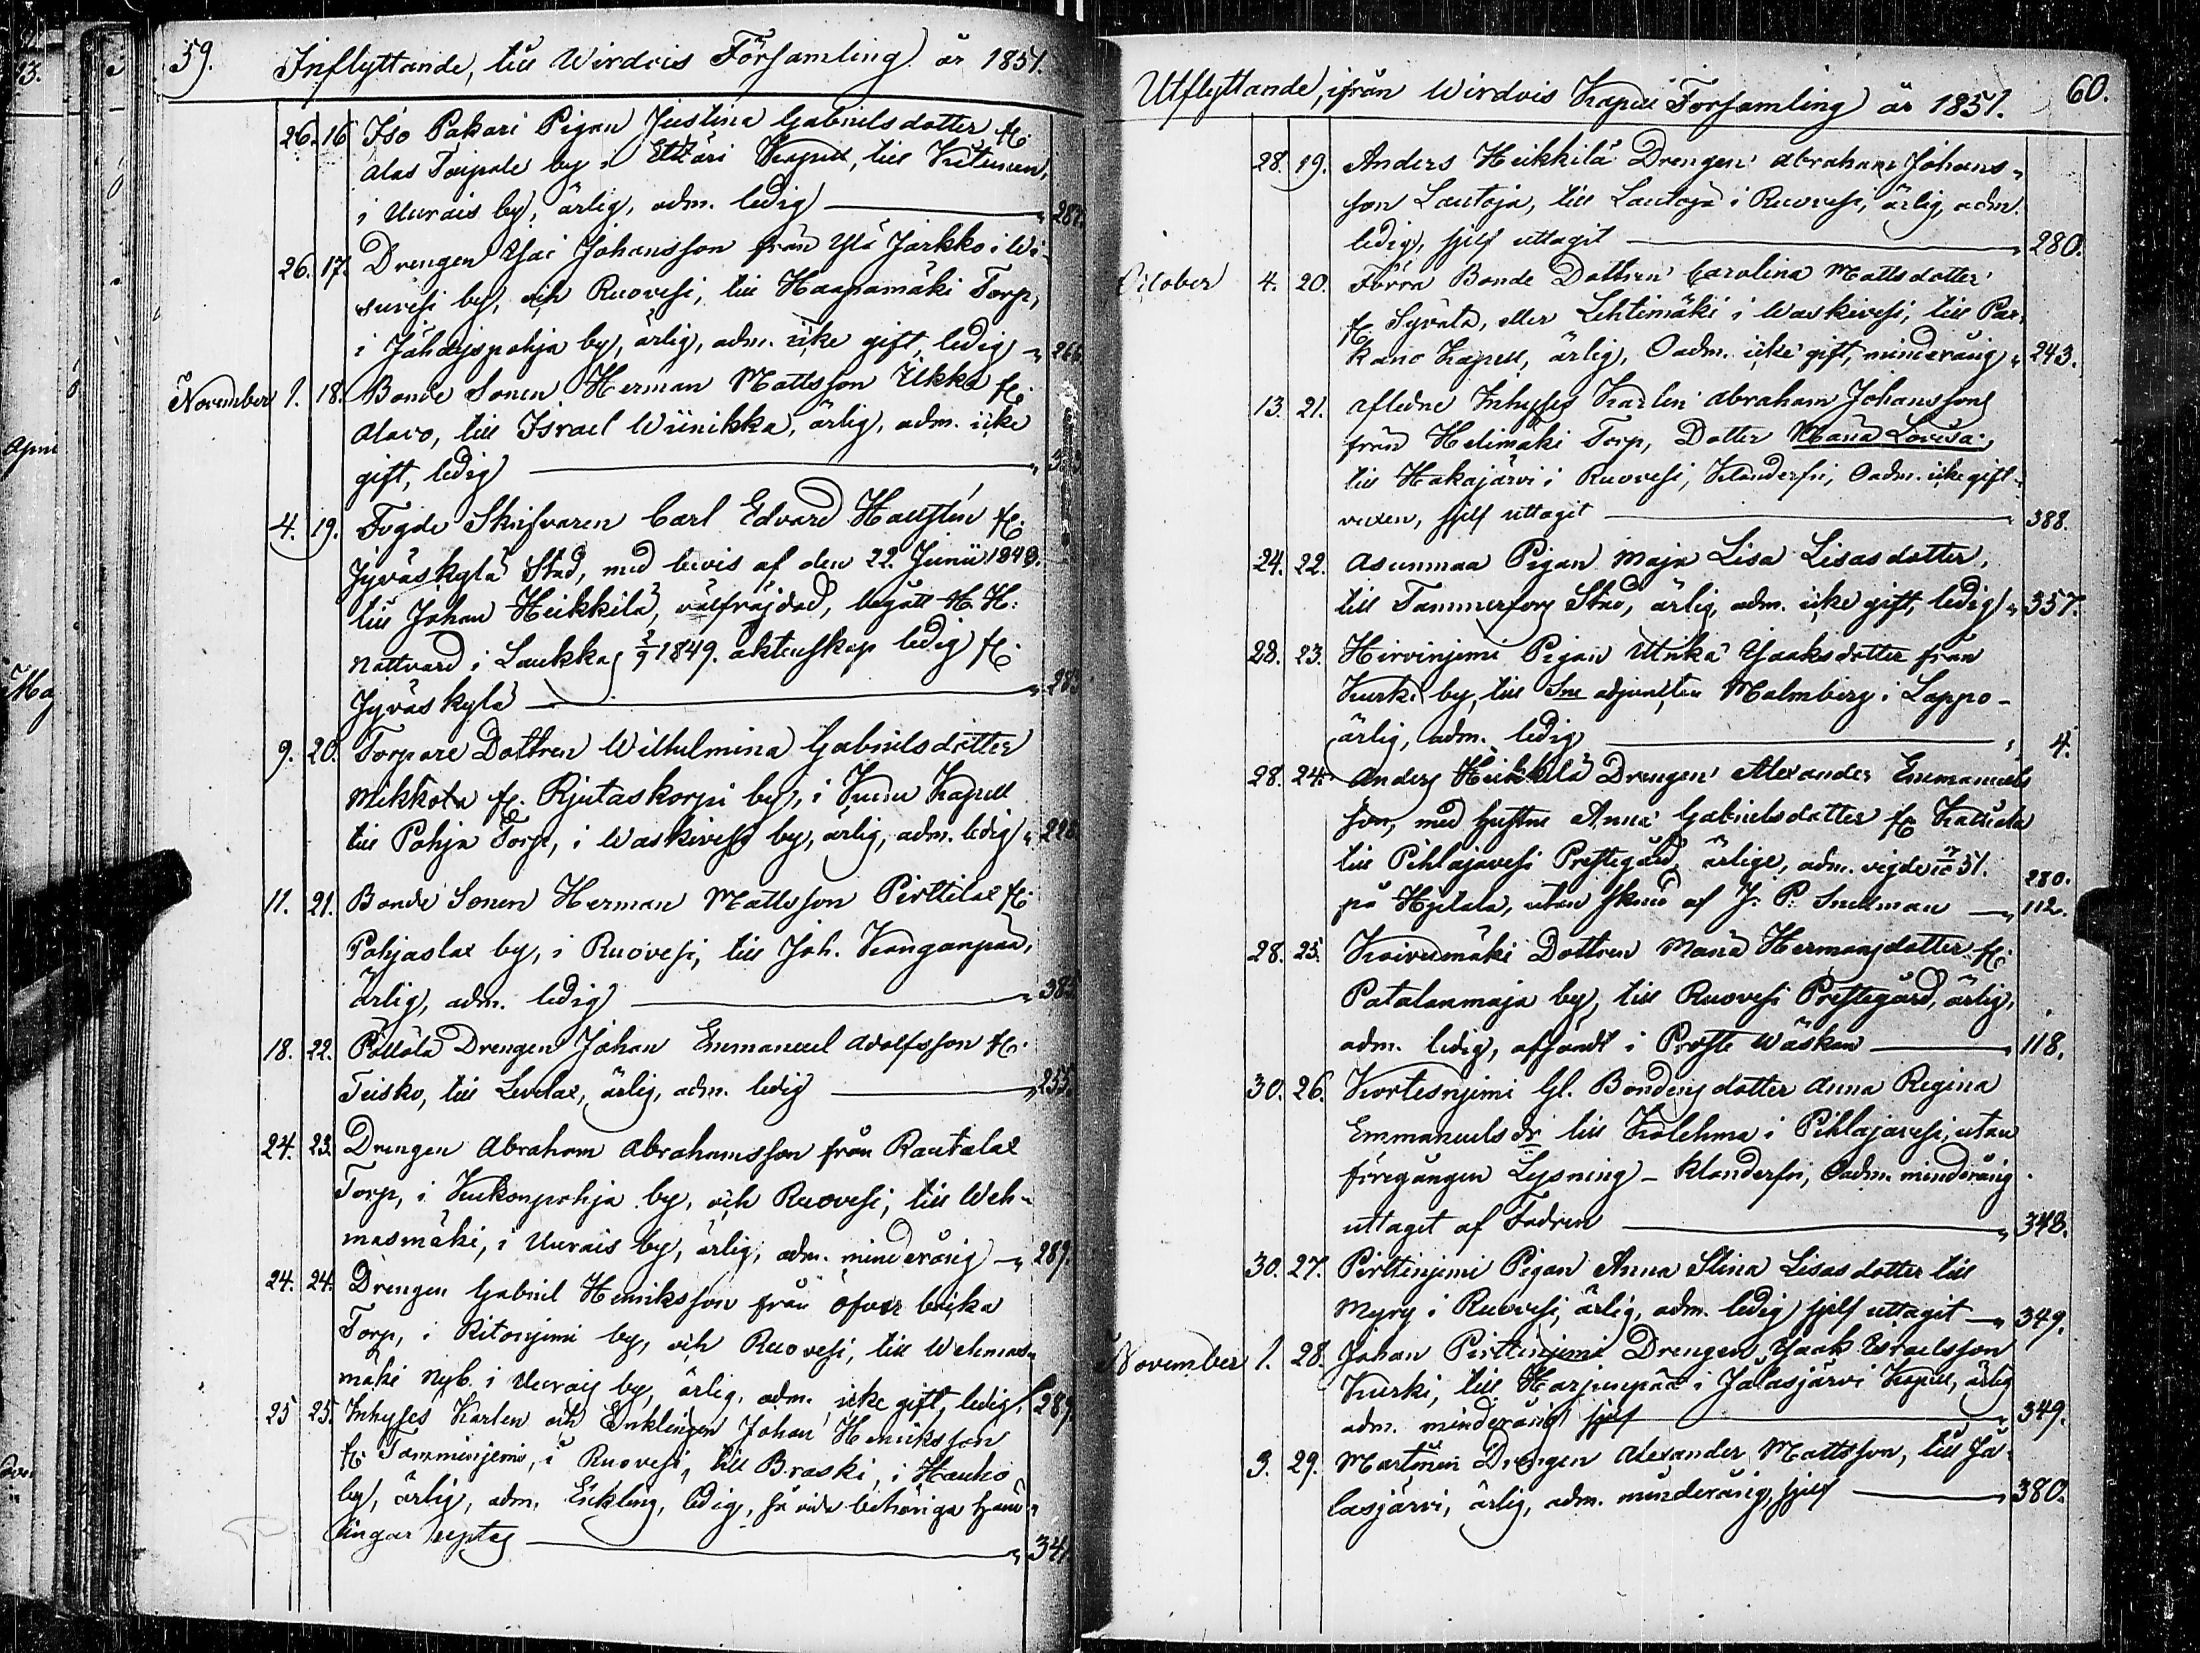 59.
Inflyttande, till Wirdois Församling år 1851.
26. 16 Iso Pakari Pigan Justina Gabrielsdotter fr.
Alas Toipale by i Etseri Kapell, till Kitunen,
i Uurais by, ärlig, adm. ledig — " 287.
26. 17. Drengen Isai Johansson från Ylä Jarkko i Wi-
suvesi by, och Ruovesi, till Haapamäki Torp,
i Jähdyspohja by, ärlig, adm. icke gift, ledig " 266.
November 1. 18. Bonde Sonen Herman Mattsson Ukka fr.
Alavo, till Israel Wiinikka, ärlig, adm. icke
gift, ledig — "
4. 19. Fogde Skrifvaren Carl Edvard fr.
Jyväskylä Stad, med bevis af den 22. Junii 1848.
till Johan Heikkilä, välfräjdad, begått H. H:
Nattvard i Laukkas 2/9 1849. äktenskap ledig fr.
Jyväskylä — " 283
9. 20. Torpare Dottren Wilhelmina Gabrielsdotter
Mikkola fr. Rjutaskorpi by, i Kuru Kapell
till Pohja Torp, i Waskivesi by, ärlig, adm. ledig " 228
11. 21. Bonde Sonen Herman Mattsson Pirttilax fr.
Pohjaslax by, i Ruovesi, till Joh. Kanganpää,
ärlig, adm. ledig — " 383
18. 22. Pöllölä Drengen Johan Emmanuel Adolfsson fr.
Teisko, till Levelax, ärlig, adm. ledig — " 255.
24. 23. Drengen Abraham Abrahamsson från Rautalax
Torp, i Kukonpohja by, och Ruovesi, till Weh-
masmäki, i Uurais by, ärlig, adm. minderårig — " 289.
24. 24. Drengen Gabriel Henriksson från öfver
Torp, i Ritoniemi by, och Ruovesi, till Wehmas-
mäki Nyb. i Uurais by, ärlig, adm. icke gift, ledig, 289.
25 25. Inhyses Karlen och Enklingen Johan Henriksson
fr. Tamminjemi, i Ruovesi, till Braski, i Hauho
by, ärlig, adm. Enkling, ledig, så vida behöriga
— " 341.
Utflyttande, ifrån Wirdois Kapell Församling år 1851.
60.
28. 19. Anders Heikkilä Drengen Abraham Johans-
son Lautoja, till Lautoja i Ruovesi, ärlig, adm.
ledig, sjelf uttagit — " 280.
October 4. 20. Förra Bonde Dottren Carolina Mattsdotter
fr. Syvälä, eller Lehtimäki i Waskivesi, till Par-
kano Kapell, ärlig, Oadm. icke gift, minderårig " 243.
13. 21. Afledne Inhyses Karlen Abraham Johanssons
från Helimäki Torp, Dotter Maria Lovisa,
till Hakajärvi i Ruovesi, Klanderfri, Oadm. icke gift
vuxen, sjelf uttagit — 388.
24. 22. Asunmaa Pigan Maja Lisa Lisasdotter,
till Tammerfors Stad, ärlig, adm. icke gift, ledig " 357.
28. 23. Hirvinjemi Pigan Ulrika Isaksdotter från
Kurki by, till Sne adjuncten Malmberg i Lappo -
ärlig, adm. ledig — " 4.
28. 24. Anders Heikkilä Drengen Alexander Emmanuels
son, med hustru Anna Gabrielsdotter fr. Kattiala
till Pihlajavesi Prestegård, ärlige, adm. vigde 51. 280.
på Hjelala, utan af J. P. Snellman — " 112.
28. 25. Koivumäki Dottren Maria Hermansdotter fr.
Patalanmaja by, till Ruovesi Prestegård, ärlig,
adm. ledig, afsändt i Proste Wäskan — " 118.
30. 26. Kortesnjemi Gl. Bondens dotter Anna Regina
Emmanuelsdr till Kolehma i Pihlajavesi, utan
föregången Lysning - Klanderfri, Oadm. minderårig
uttaget af Fadren — " 348.
30. 27. Pirttinjemi Pigan Anna Stina Lisasdotter till
Myry i Ruovesi, ärlig, adm. ledig sjelf uttagit — " 349.
November 1. 28. Johan Pirttinjemi Drengen Isaak Israelsson
Kurki, till Harjunpää i Jalasjärvi Kapell, ärlig
adm. minderårig sjelf — " 349.
3. 29. Martinen Drengen Alexander Mattsson, till Ja-
lasjärvi, ärlig, adm. minderårig, sjelf — " 380.